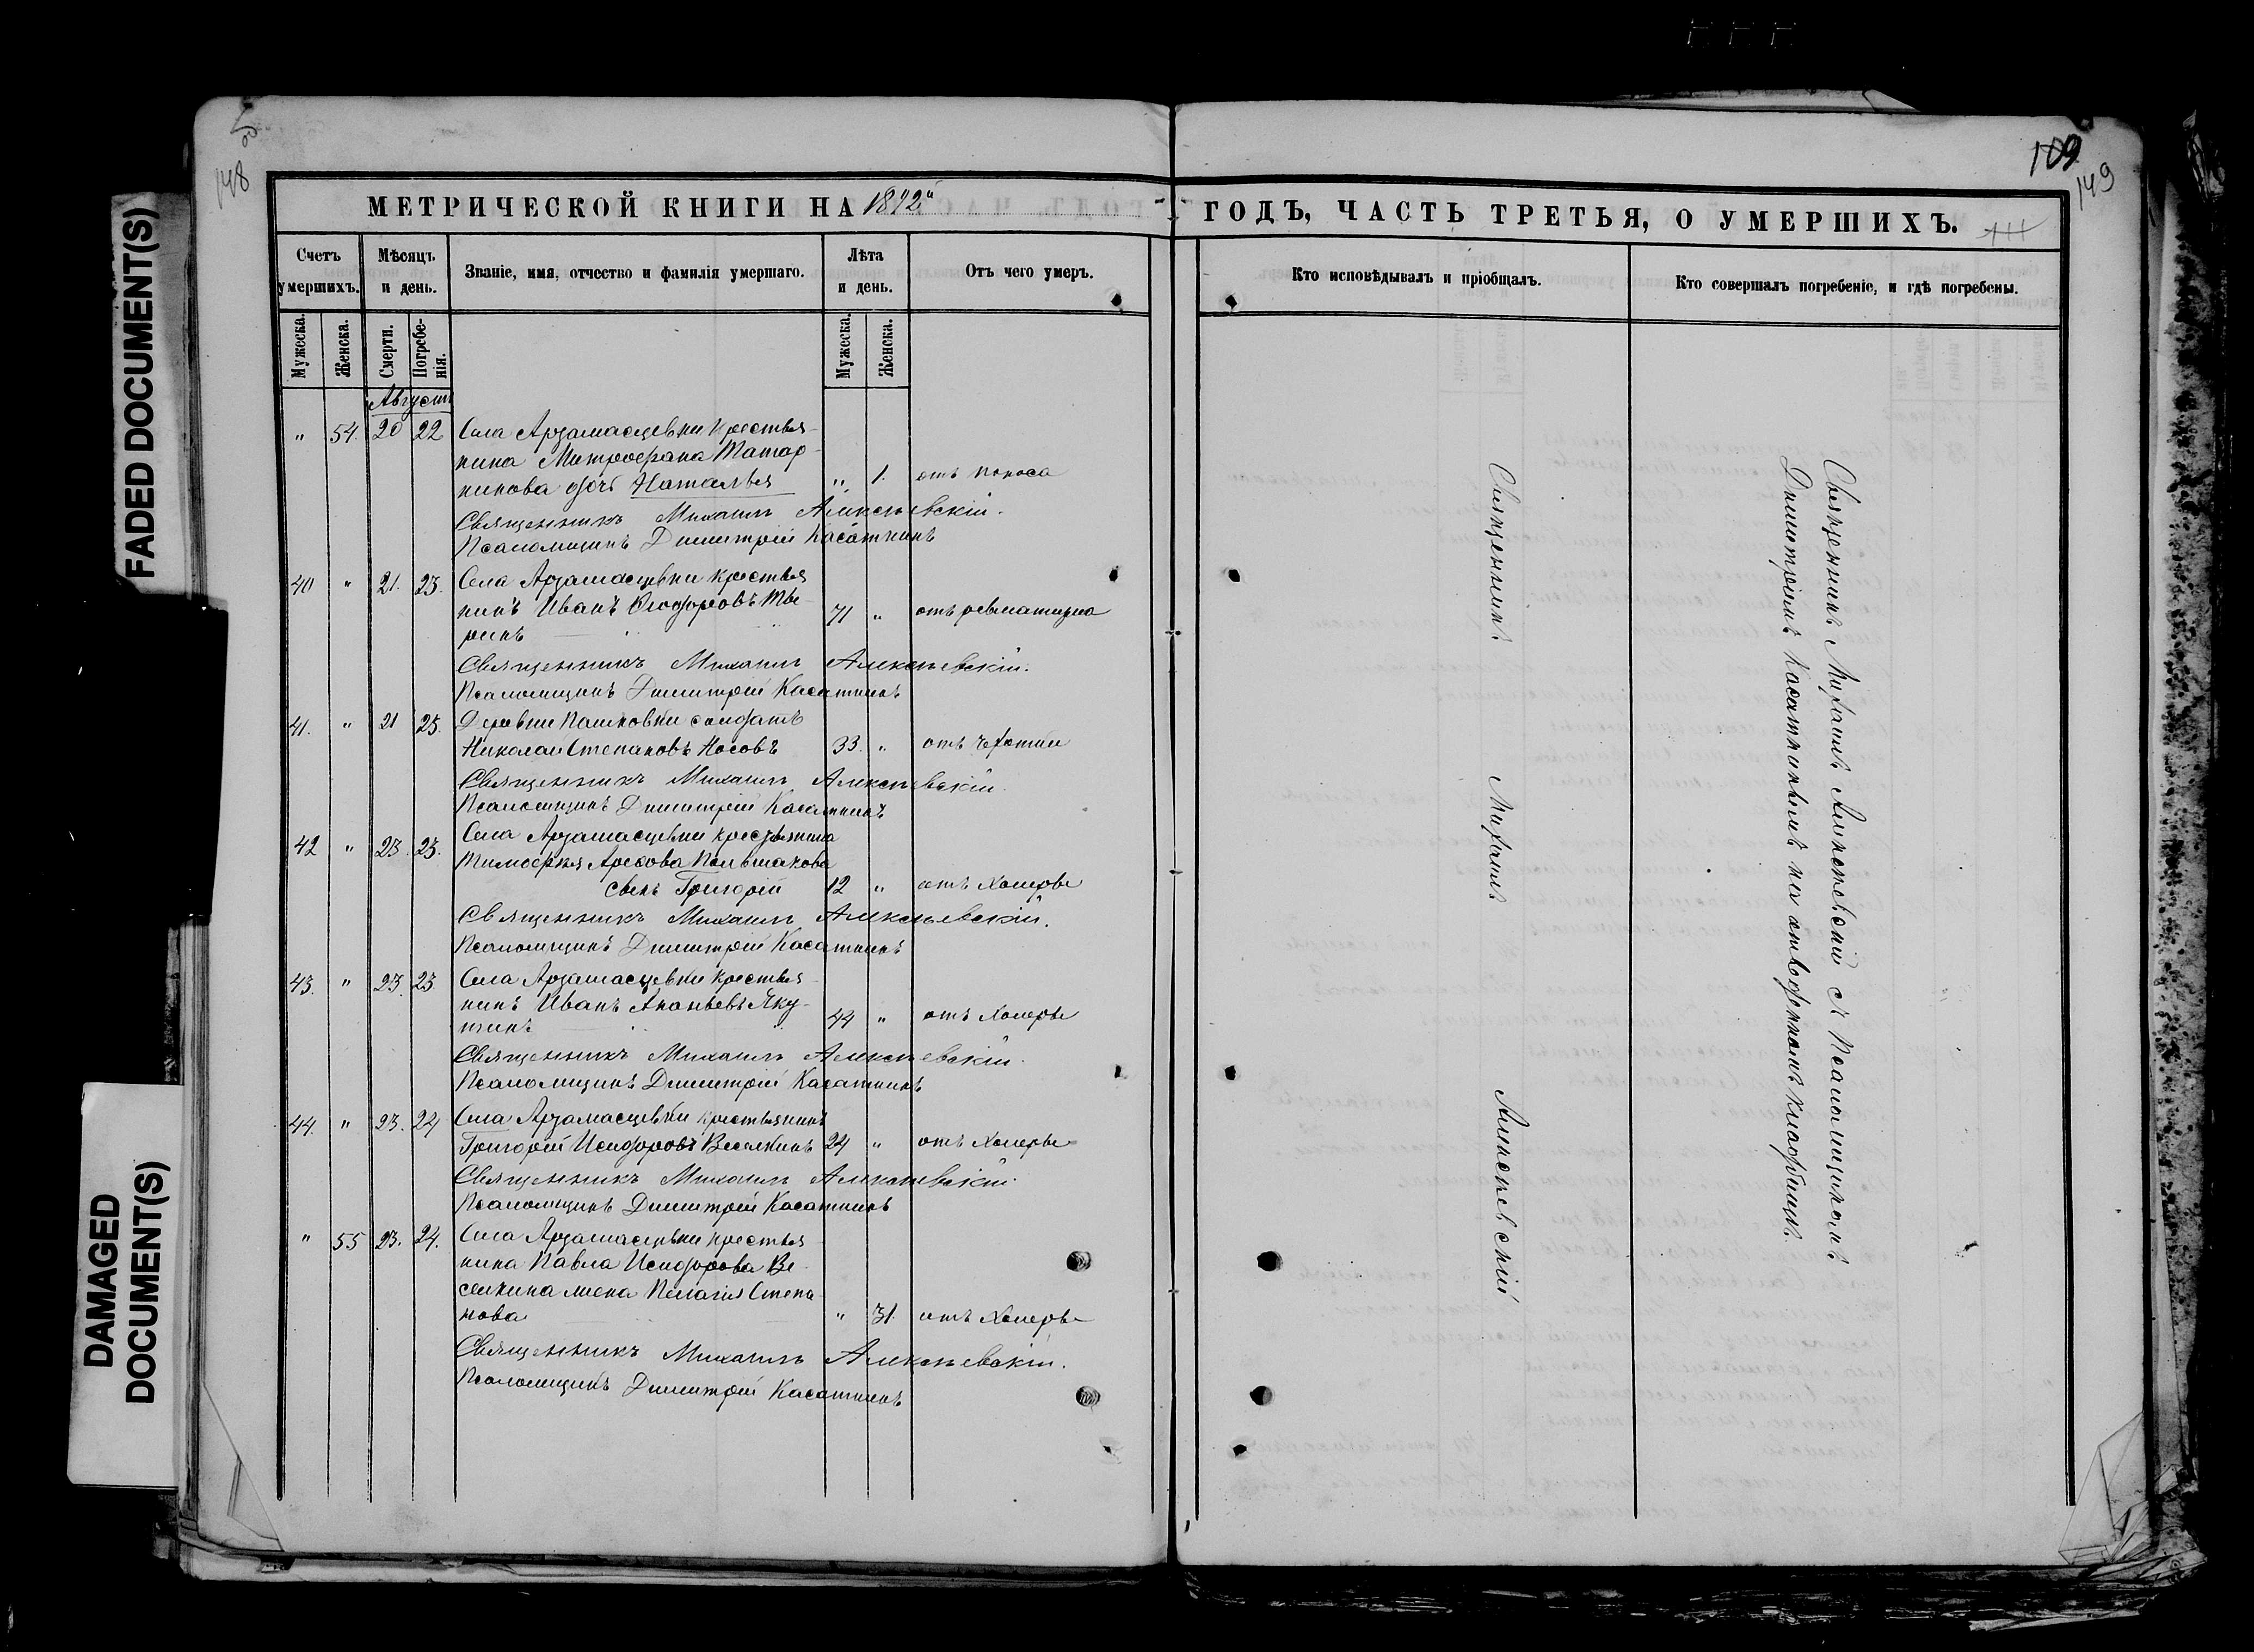 FADED DOCUMENT(S)
DAMAGED
DOCUMENT(S)
148
109
149
МЕТРИЧЕСКОЙ КНИГИ НА 1892й
ГОДЪ, ЧАСТЬ ТРЕТЬЯ, О УМЕРШИХЪ.
Счетъ умершихъ.
Мѣсяцъ и день.
Званіе, имя, отчество и фамилія умершаго.
Лѣта и день.
Отъ чего умеръ.
Кто исповѣдывалъ и пріобщалъ.
Кто совершалъ погребеніе, и гдѣ погребены.
Мужеска.
Женска.
Смерти.
Погребенія.
Мужеска.
Женска.
Августъ
" 54. 20 22 Села Арзамасцевки крестья-
нина Митрофана Татар-
никова дочь Наталья " 1. отъ поноса
Священникъ Михаилъ Алексѣевскій.
Псаломщикъ Димитрій Касаткинъ
40 " 21. 23. Села Арзамасцевки крестья
нинъ Иванъ Ѳеодоровъ Тве- 71 " отъ ревматизма
ринъ
Священникъ Михаилъ Алексѣевскій.
Псаломщикъ Димитрій Касаткинъ
41. " 21 23. Деревни Пашковки солдатъ
Николай Степановъ Носовъ 33. " отъ чахотки
Священникъ Михаилъ Алексѣевскій
Псаломщикъ Димитрій Касаткинъ
42 " 23. 23. Села Арзамасцевки крестьянина
Тимофея
сынъ Григорій 12 " отъ холеры
Священникъ Михаилъ Алексѣевскій.
Псаломщикъ Димитрій Касаткинъ
43. " 23. 23 Села Арзамасцевки крестья-
нинъ Иванъ Ананьевъ Яку- 44 " отъ холеры
шинъ
Священникъ Михаилъ Алексѣевскій.
Псаломщикъ Димитрій Касаткинъ
44. " 23. 24 Села Арзамасцевки крестьянинъ
Григорій Исидоровъ Веселкинъ 24 " отъ холеры
Священникъ Михаилъ Алексѣевскій.
Псаломщикъ Димитрій Касаткинъ
" 55 23. 24. Села Арзамасцевки крестья
нина Павла Исидорова Ве-
селкина жена Пелагія Степа-
нова " 31. отъ холеры
Священникъ Михаилъ Алексѣевскій.
Псаломщикъ Димитрій Касаткинъ
Священникъ Михаилъ Алексѣевскій
Священникъ Михаилъ Алексѣевскій съ Псаломщикомъ
Димитріемъ Касаткинымъ на отводномъ кладбищѣ.